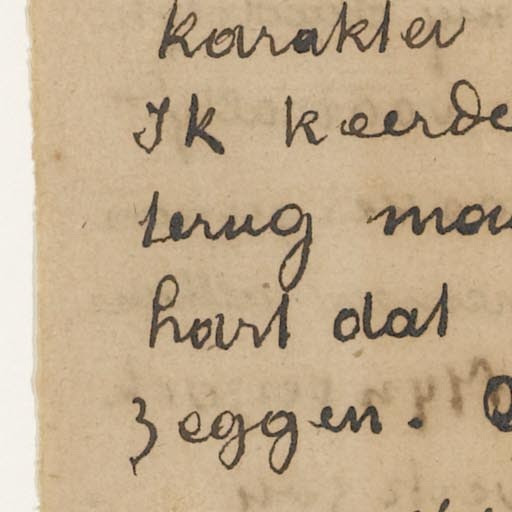 karakter
Ik keerde
terug
hart dat
zeggen.